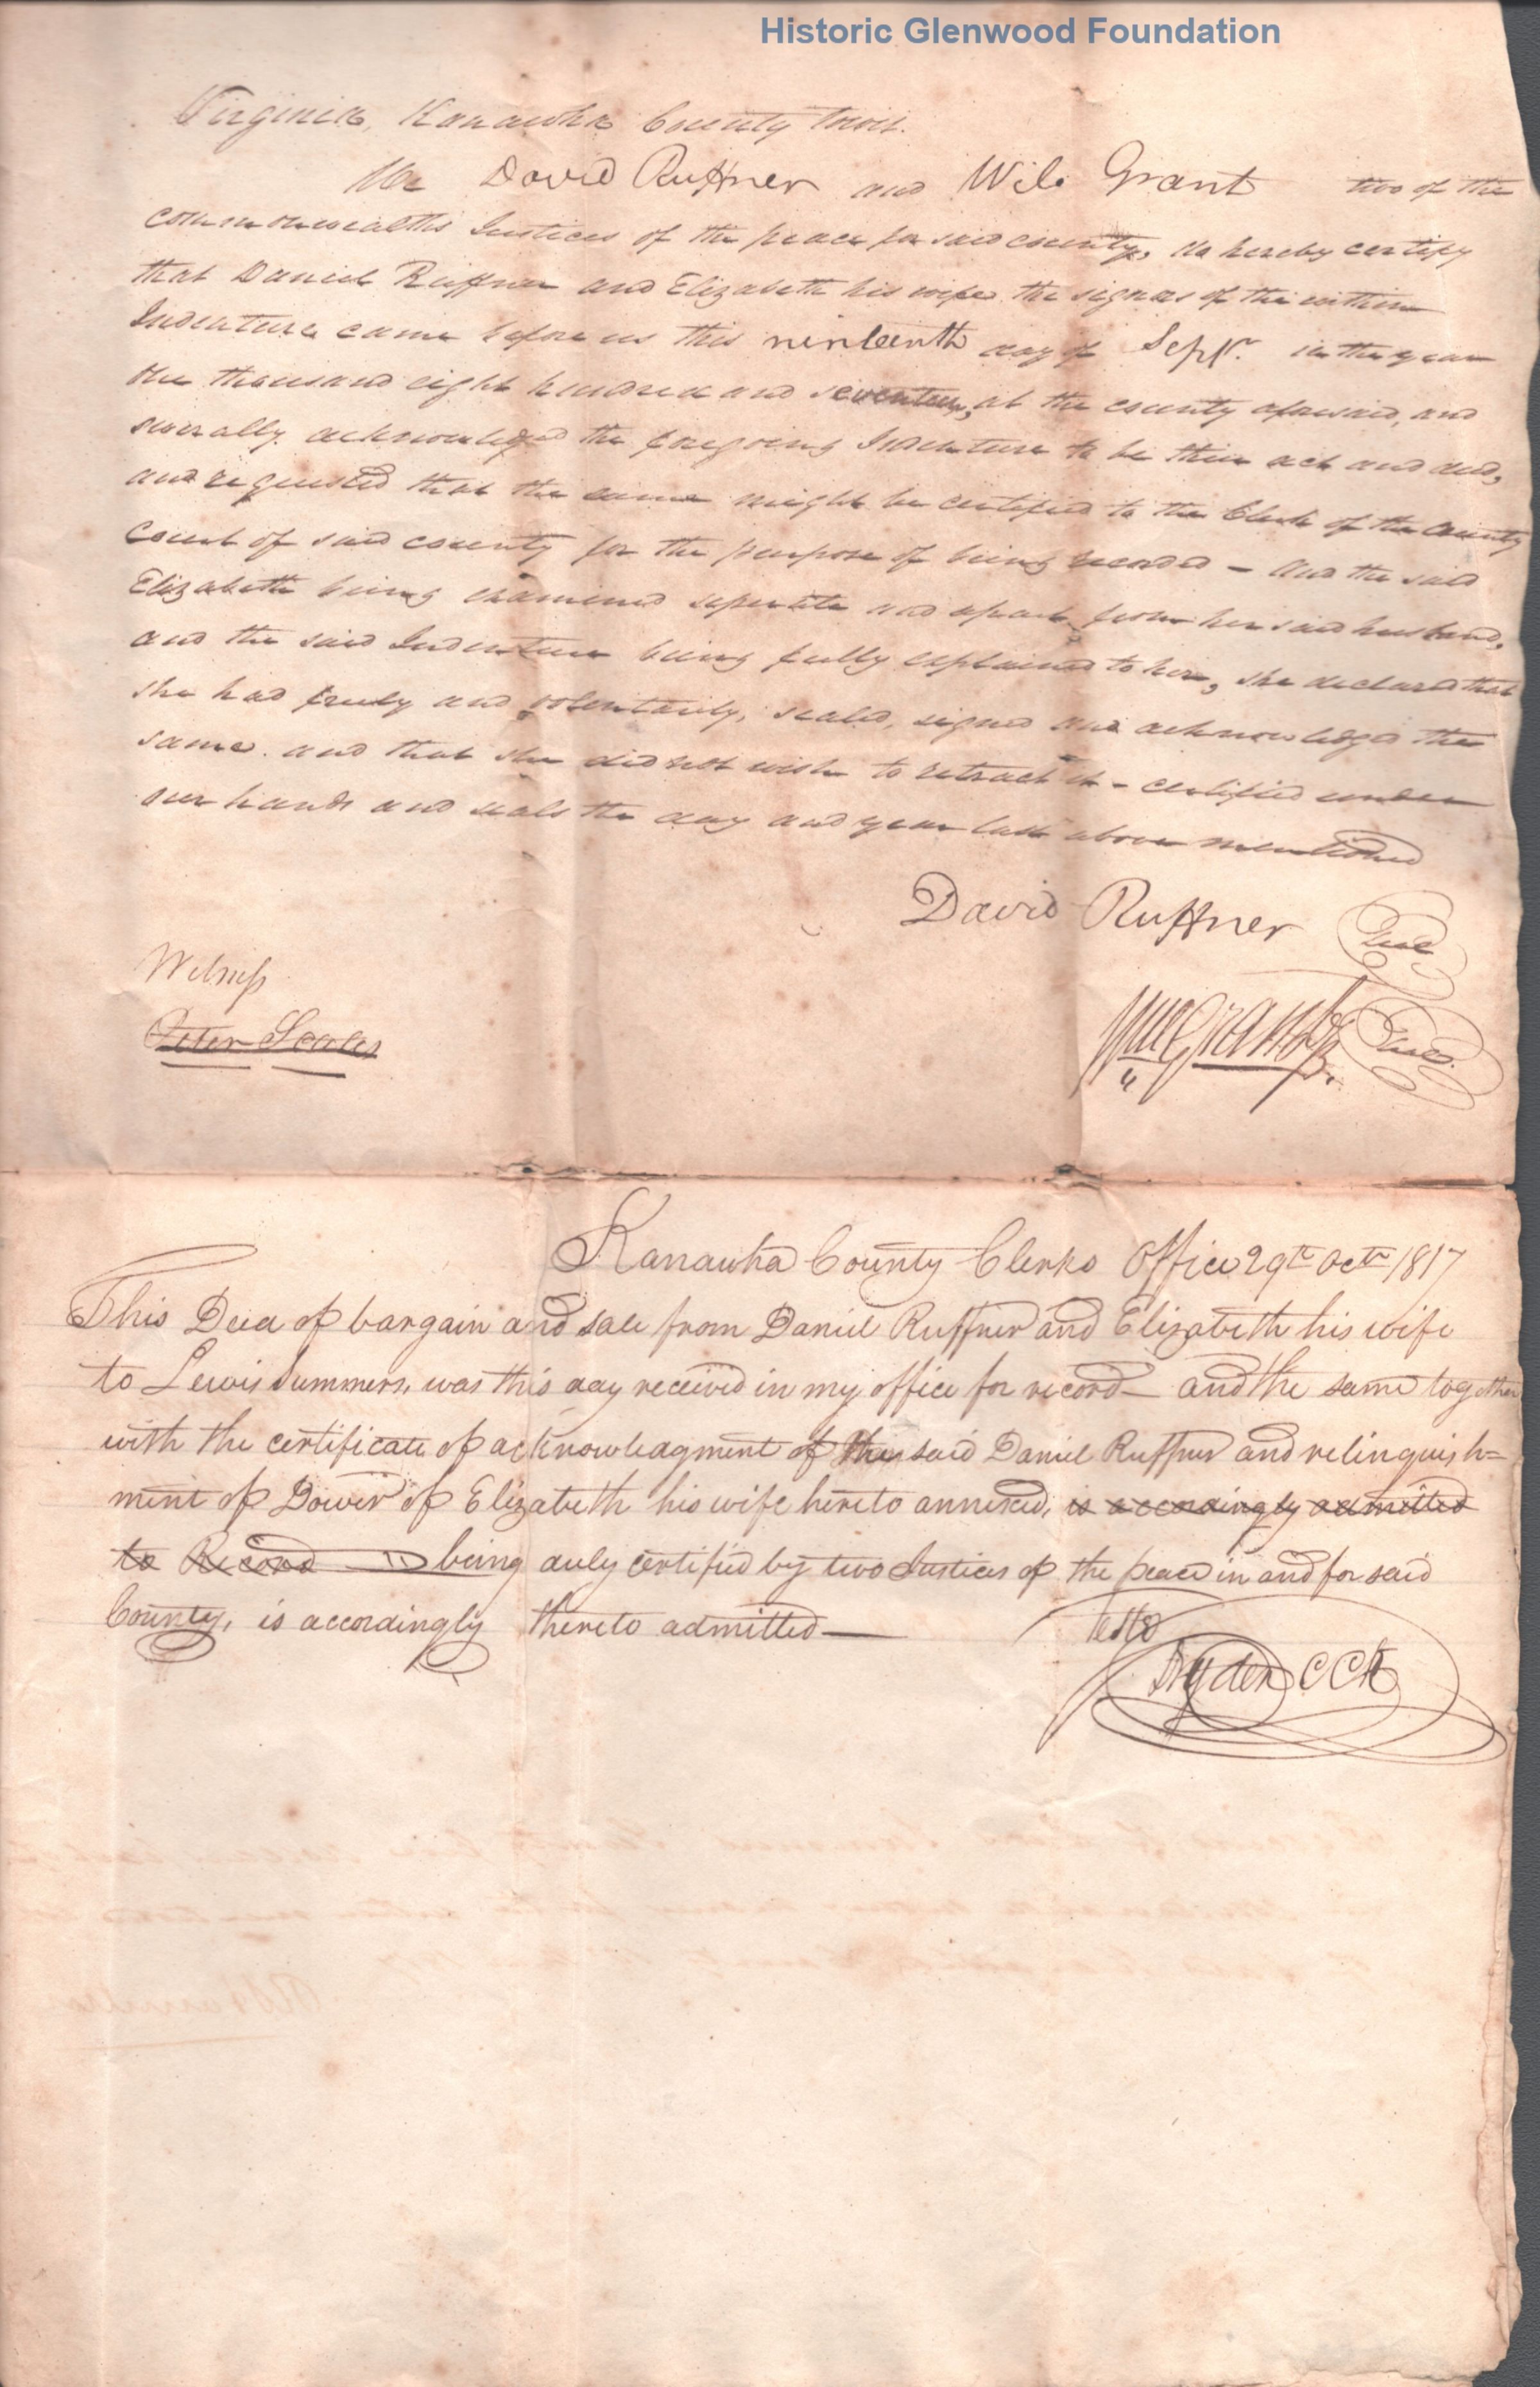 Historic Glenwood Foundation
Virginia, Kanawha County towit.
We David Ruffner and Wile Grant two of the
commonwealths Justices of the peace for said county, do hereby certify
that Daniel Ruffner and Elizabeth his wife the signers of the within
Indenture came before us this ninteenth day of Sepr. in the year
one thousand eight hundred and seventeen, at the county aforesaid, and
severally acknowledged the foregoing Indenture to be their act and deed,
and requested that the same might be certified to the Clerk of the County
Court of said county for the purpose of being recorded - And the said
Elizabeth being examined seperate and apart from her said husband,
and the said Indenture being fully explained to her, she declared that
she had freely and volentarily, sealed, signed and acknowledged the
same. and that she did not wish to retract it - certified under
our hands and seals the day and year last above mentioned
David Ruffner Seal
Witness
Wm Grant Seal
Kanawha County Clerks Office 29th Octr 1817
This Deed of bargain and sale from Daniel Ruffner and Elizabeth his wife
to Lewis Summers, was this day received in my office for record - and the same together
with the certificate of acknowledgment of the said Daniel Ruffner and relinquish=
ment of Dower of Elizabeth his wife hereto annexed, is accordingly admitted
to Record being duly certified by two Justices of the peace in and for said
County, is accordingly thereto admitted —
Teste
Dryden CCK